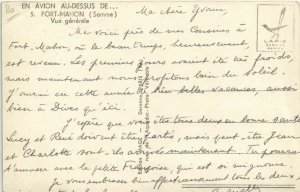 EN AVION AU-DESSUS DE...
5. FORT-MAHON (Somme)
Vue générale
Ma chère Yvonne
Me voici près de mes Cousines à
Fort-Mahon, où le beau temps, heureusement,
est revenu. Les premiers jours avaient été très froids,
mais maintenant nous profitons bien du Soleil.
J'aurai eu cette année de bien belles Vacances, aussi
bien à Dives qu'ici.
J'espère que vous êtes tous deux en bonne santé
Lucy et René doivent être partis, mais peut être Jean
et Charlotte sont ils arrivés maintenant. Tu pourras
t'amuser avec la petite Françoise, qui est si mignonne
Je vous embrasse bien affectueusement tous les deux